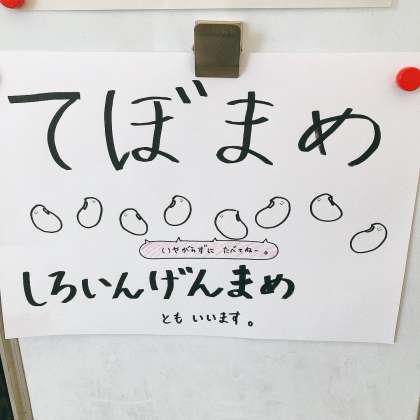 てぼまめ
いやがらずに たべてねー。
しろいんげんまめ
とも いいます。